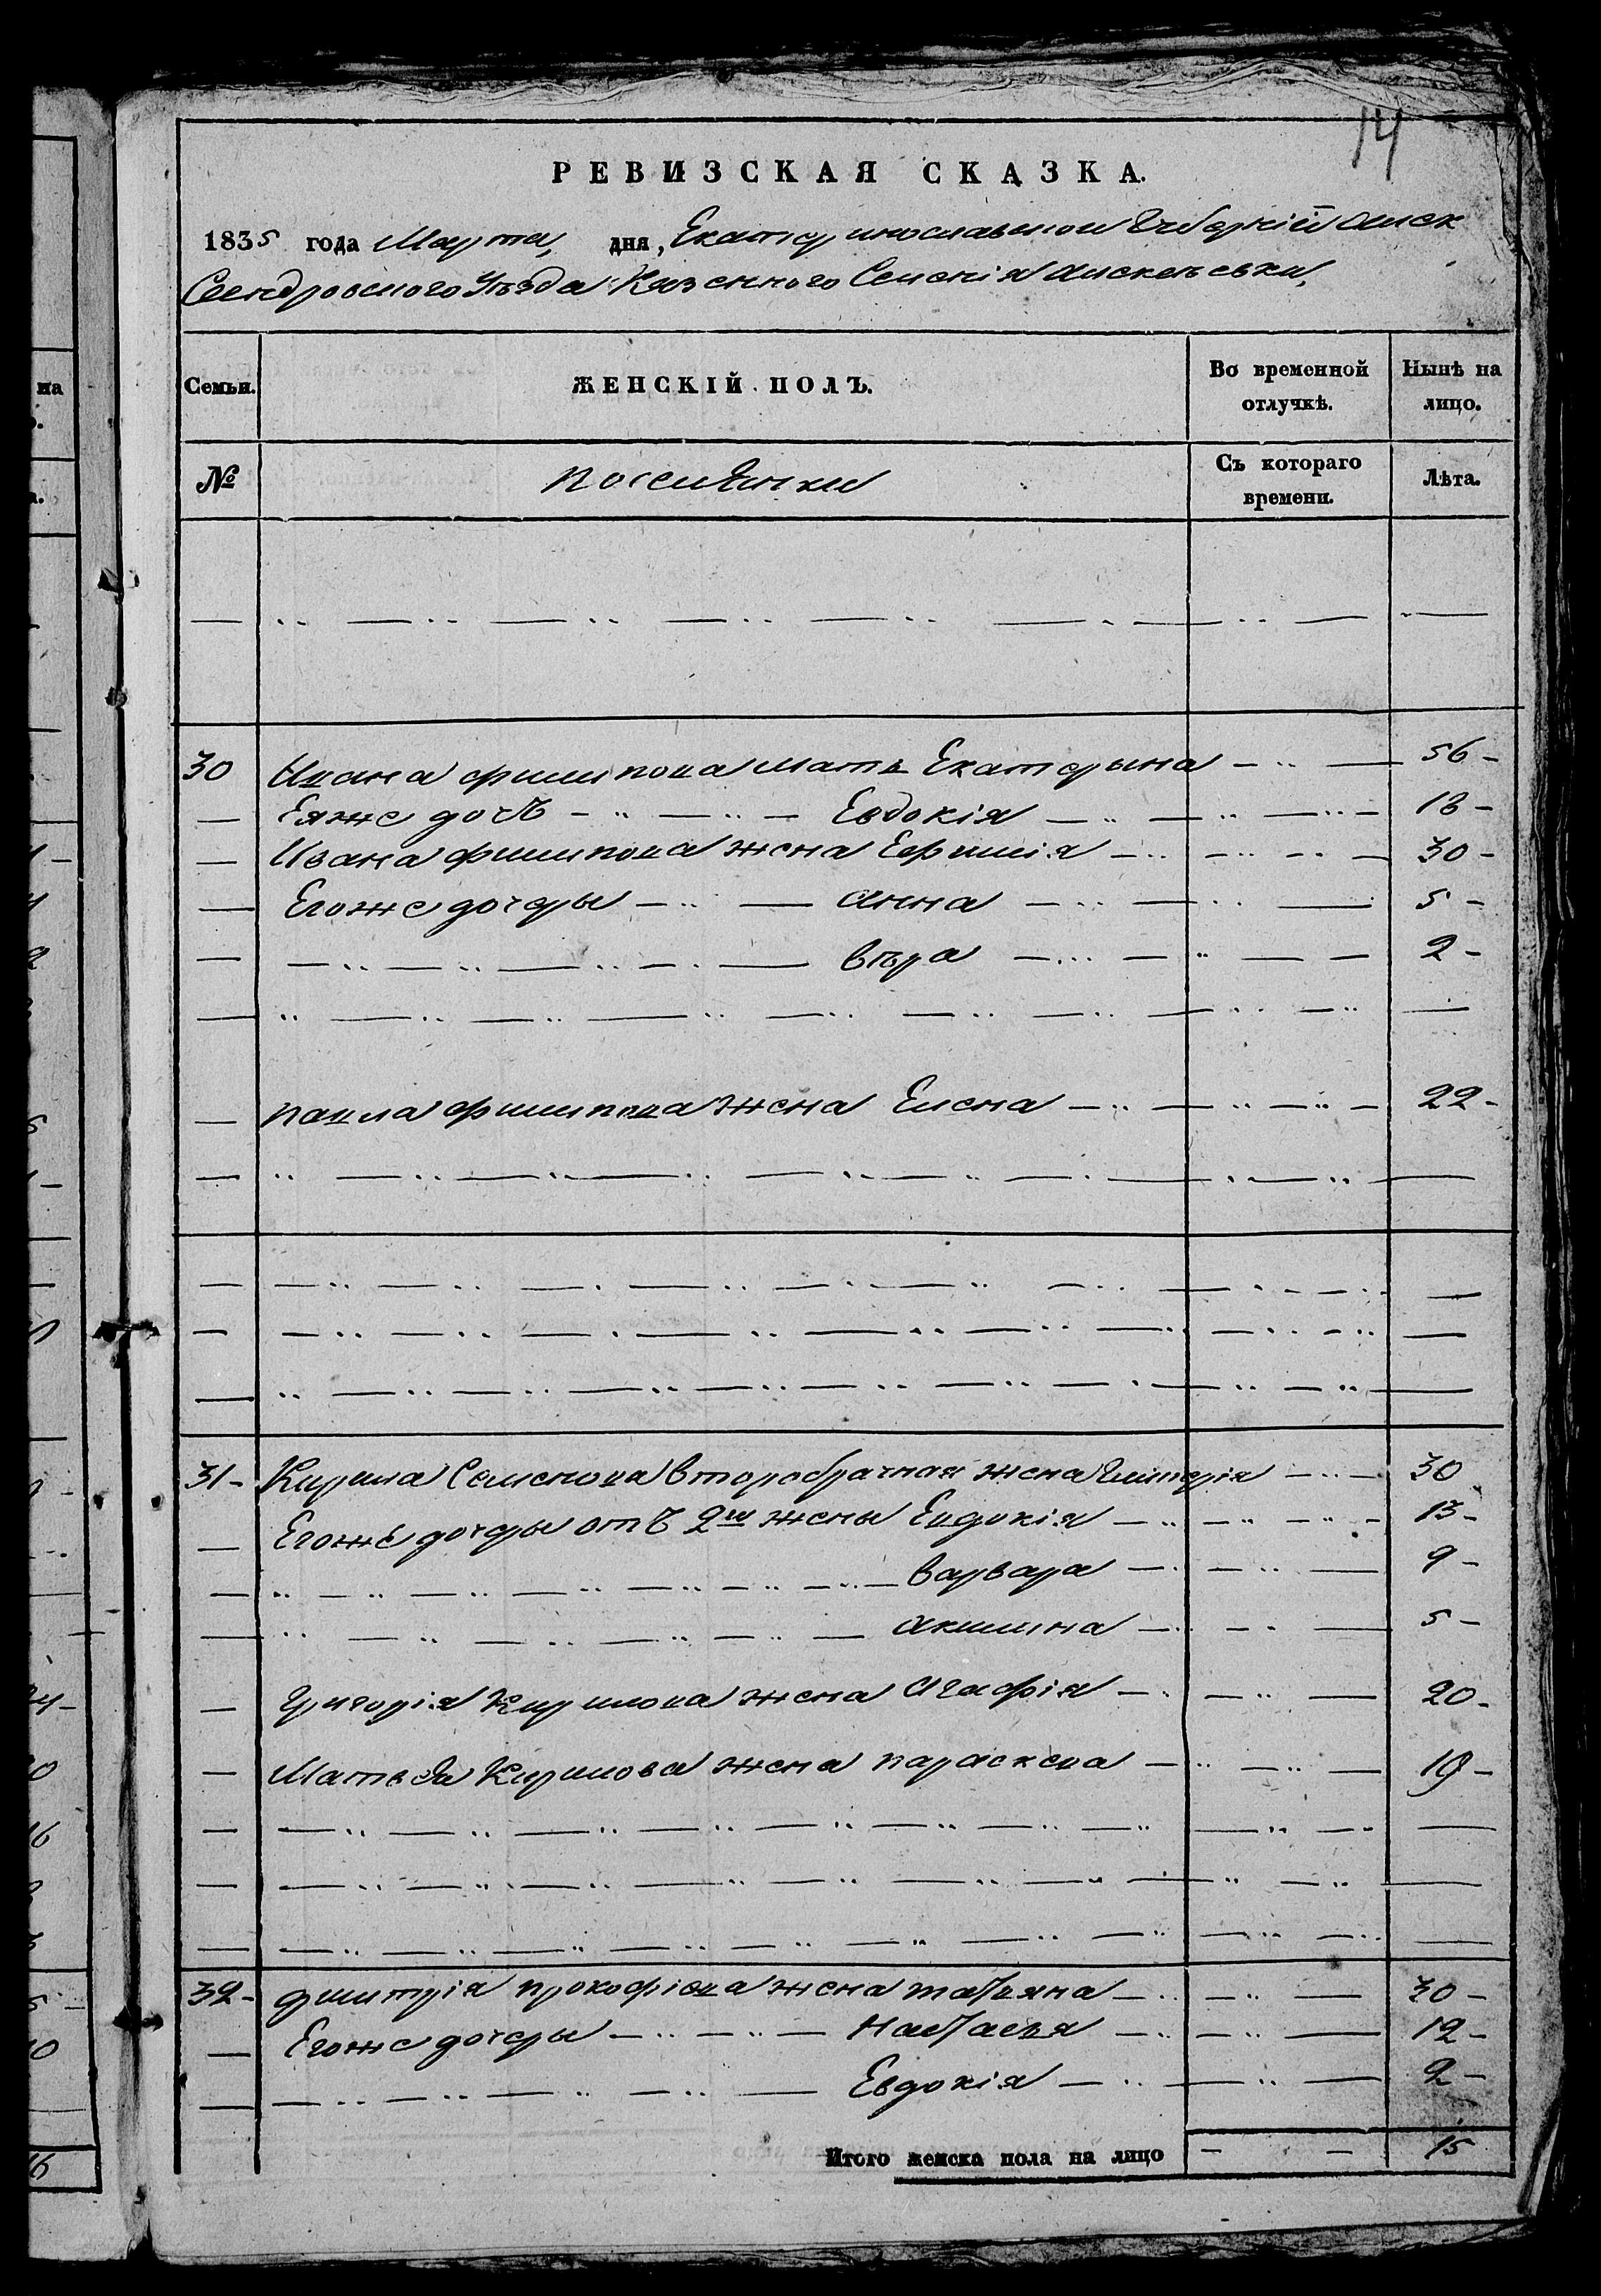 14
РЕВИЗСКАЯ СКАЗКА.
1835 года Марта, дня, Екатеринославской Губерніи Алек
Сендровского Уѣзда Казенного Селенія Алексѣевки,
Семьи. ЖЕНСКІЙ ПОЛЪ. Во временной отлучкѣ. Нынѣ на лицо.
№ поселянки Съ котораго времени. Лѣта.
30 Ивана филипова мать Екатерына 56
Еяже дочь Евдокія 18
Ивана филипова жена Ефимія 30
Егоже дочеры Анна 5
вѣра 2
павла филипова жена Елена 22
31 Кирила Семенова второбрачная жена Гликерія 30
Егоже дочеры отъ 2й жены Евдокія 13
варвара 9
Акилина 5
Григорія Кирилова жена Агафія 20
Матвея Кирилова жена параскева 19
32 дмитрія прокофіева жена татьяна 30
Егоже дочеры Настасья 12
Евдокія 2
Итого женска пола на лицо 15